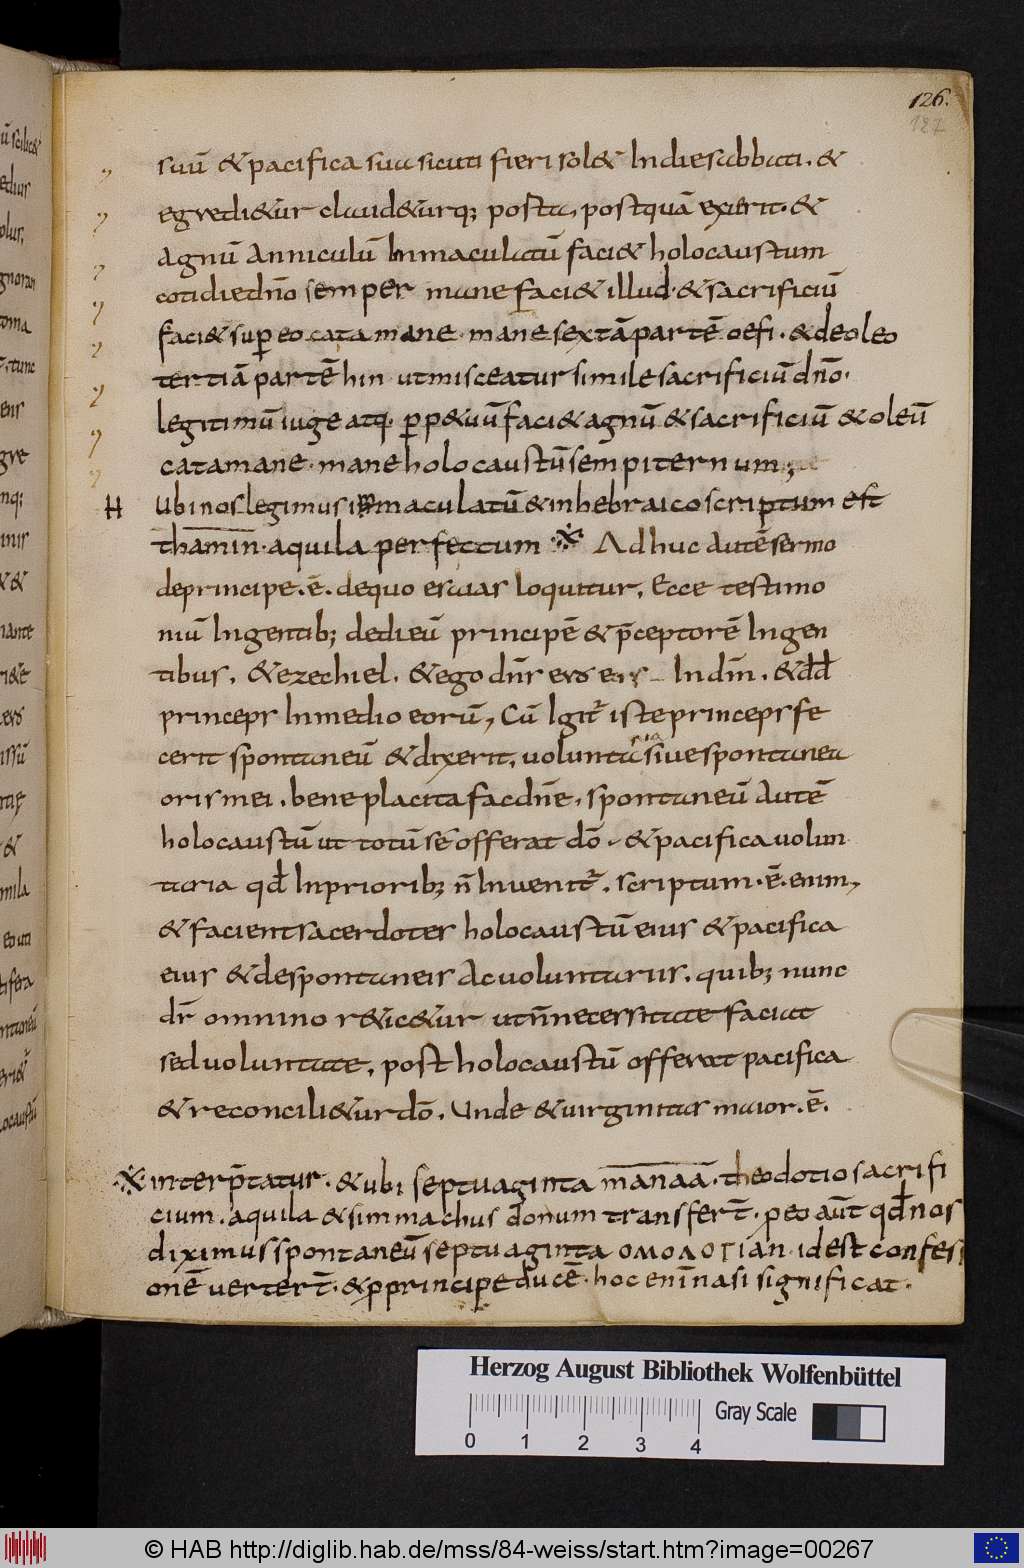 126.
127
suū & pacifica sua sicuti fieri sol& In die sabbati. &
egredi&ur claud&urq; posta, postquā exierit. &
agnū anniculū Inmaculatū faci& holocaustum
cotidie dn̄o semper mane faci& illud. & sacrificiū
faci& sup̱ eo cata mane. mane sextā partē oefi. & de oleo
tertiā partē hin. ut misceatur simile sacrificiū dn̄o.
legitimū iuge atq. p̱p&uū faci& agnū & sacrificiū & oleū
catamane. mane holocaustū sempiternum;
H Ubi nos legimus immaculatū & in hebraico scriptum est
thamin. aquila perfectum ※ Adhuc autē sermo
de principe. ē. de quo esaias loquitur, Ecce testimo
niū In gentib; dedi eū principē & p̄ceptorē In gen
tibus. & ezechiel. & ego dn̄s eis In dn̄m. & dd̄
princeps In medio eorū, Cū Igit̄ iste princeps fe
cerit spontaneū & dixerit, uoluntaria siue spontanea
oris mei. bene placita fac dn̄e, spontaneū autē
holocaustū ut totū se offerat dō. & pacifica uolun
taria qd̄ In priorib; n̄ Inuenit̄. scriptum. ē. enim,
& facient sacerdotes holocaustū eius & pacifica
eius & de spontaneis ac uoluntariis. quib; nunc
dr̄ omnino r&ic&ur ut n̄ necessitate faciat
sed uoluntate, post holocaustū offerat pacifica
& reconcili&ur dō. Unde & uirginitas maior. ē.
※ interp̄tatur. & ubi septuaginta mānaā. theodotio sacrifi
cium. aquila & simmachus donum transfert̄. p eo aūt qd̄ nos
diximus spontaneū septuaginta ομολογιαn. id est confessi
onē uertert̄. & p principe ducē. hoc enī nasi significat.
Herzog August Bibliothek Wolfenbüttel
0 1 2 3 4
Gray Scale
© HAB http://diglib.hab.de/mss/84-weiss/start.htm?image=00267